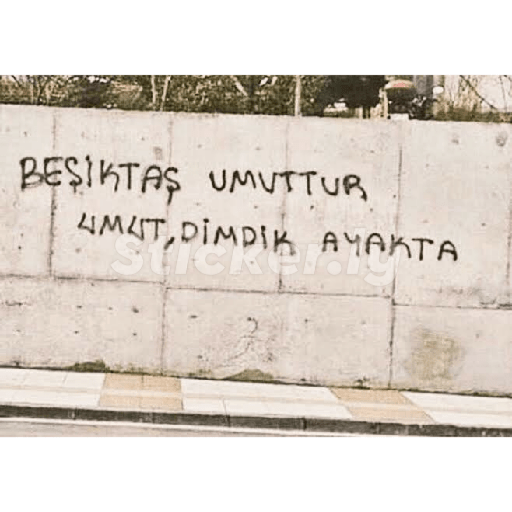 BEŞİKTAŞ UMUTTUR
UMUT, DİMDİK AYAKTA
Sticker.ly